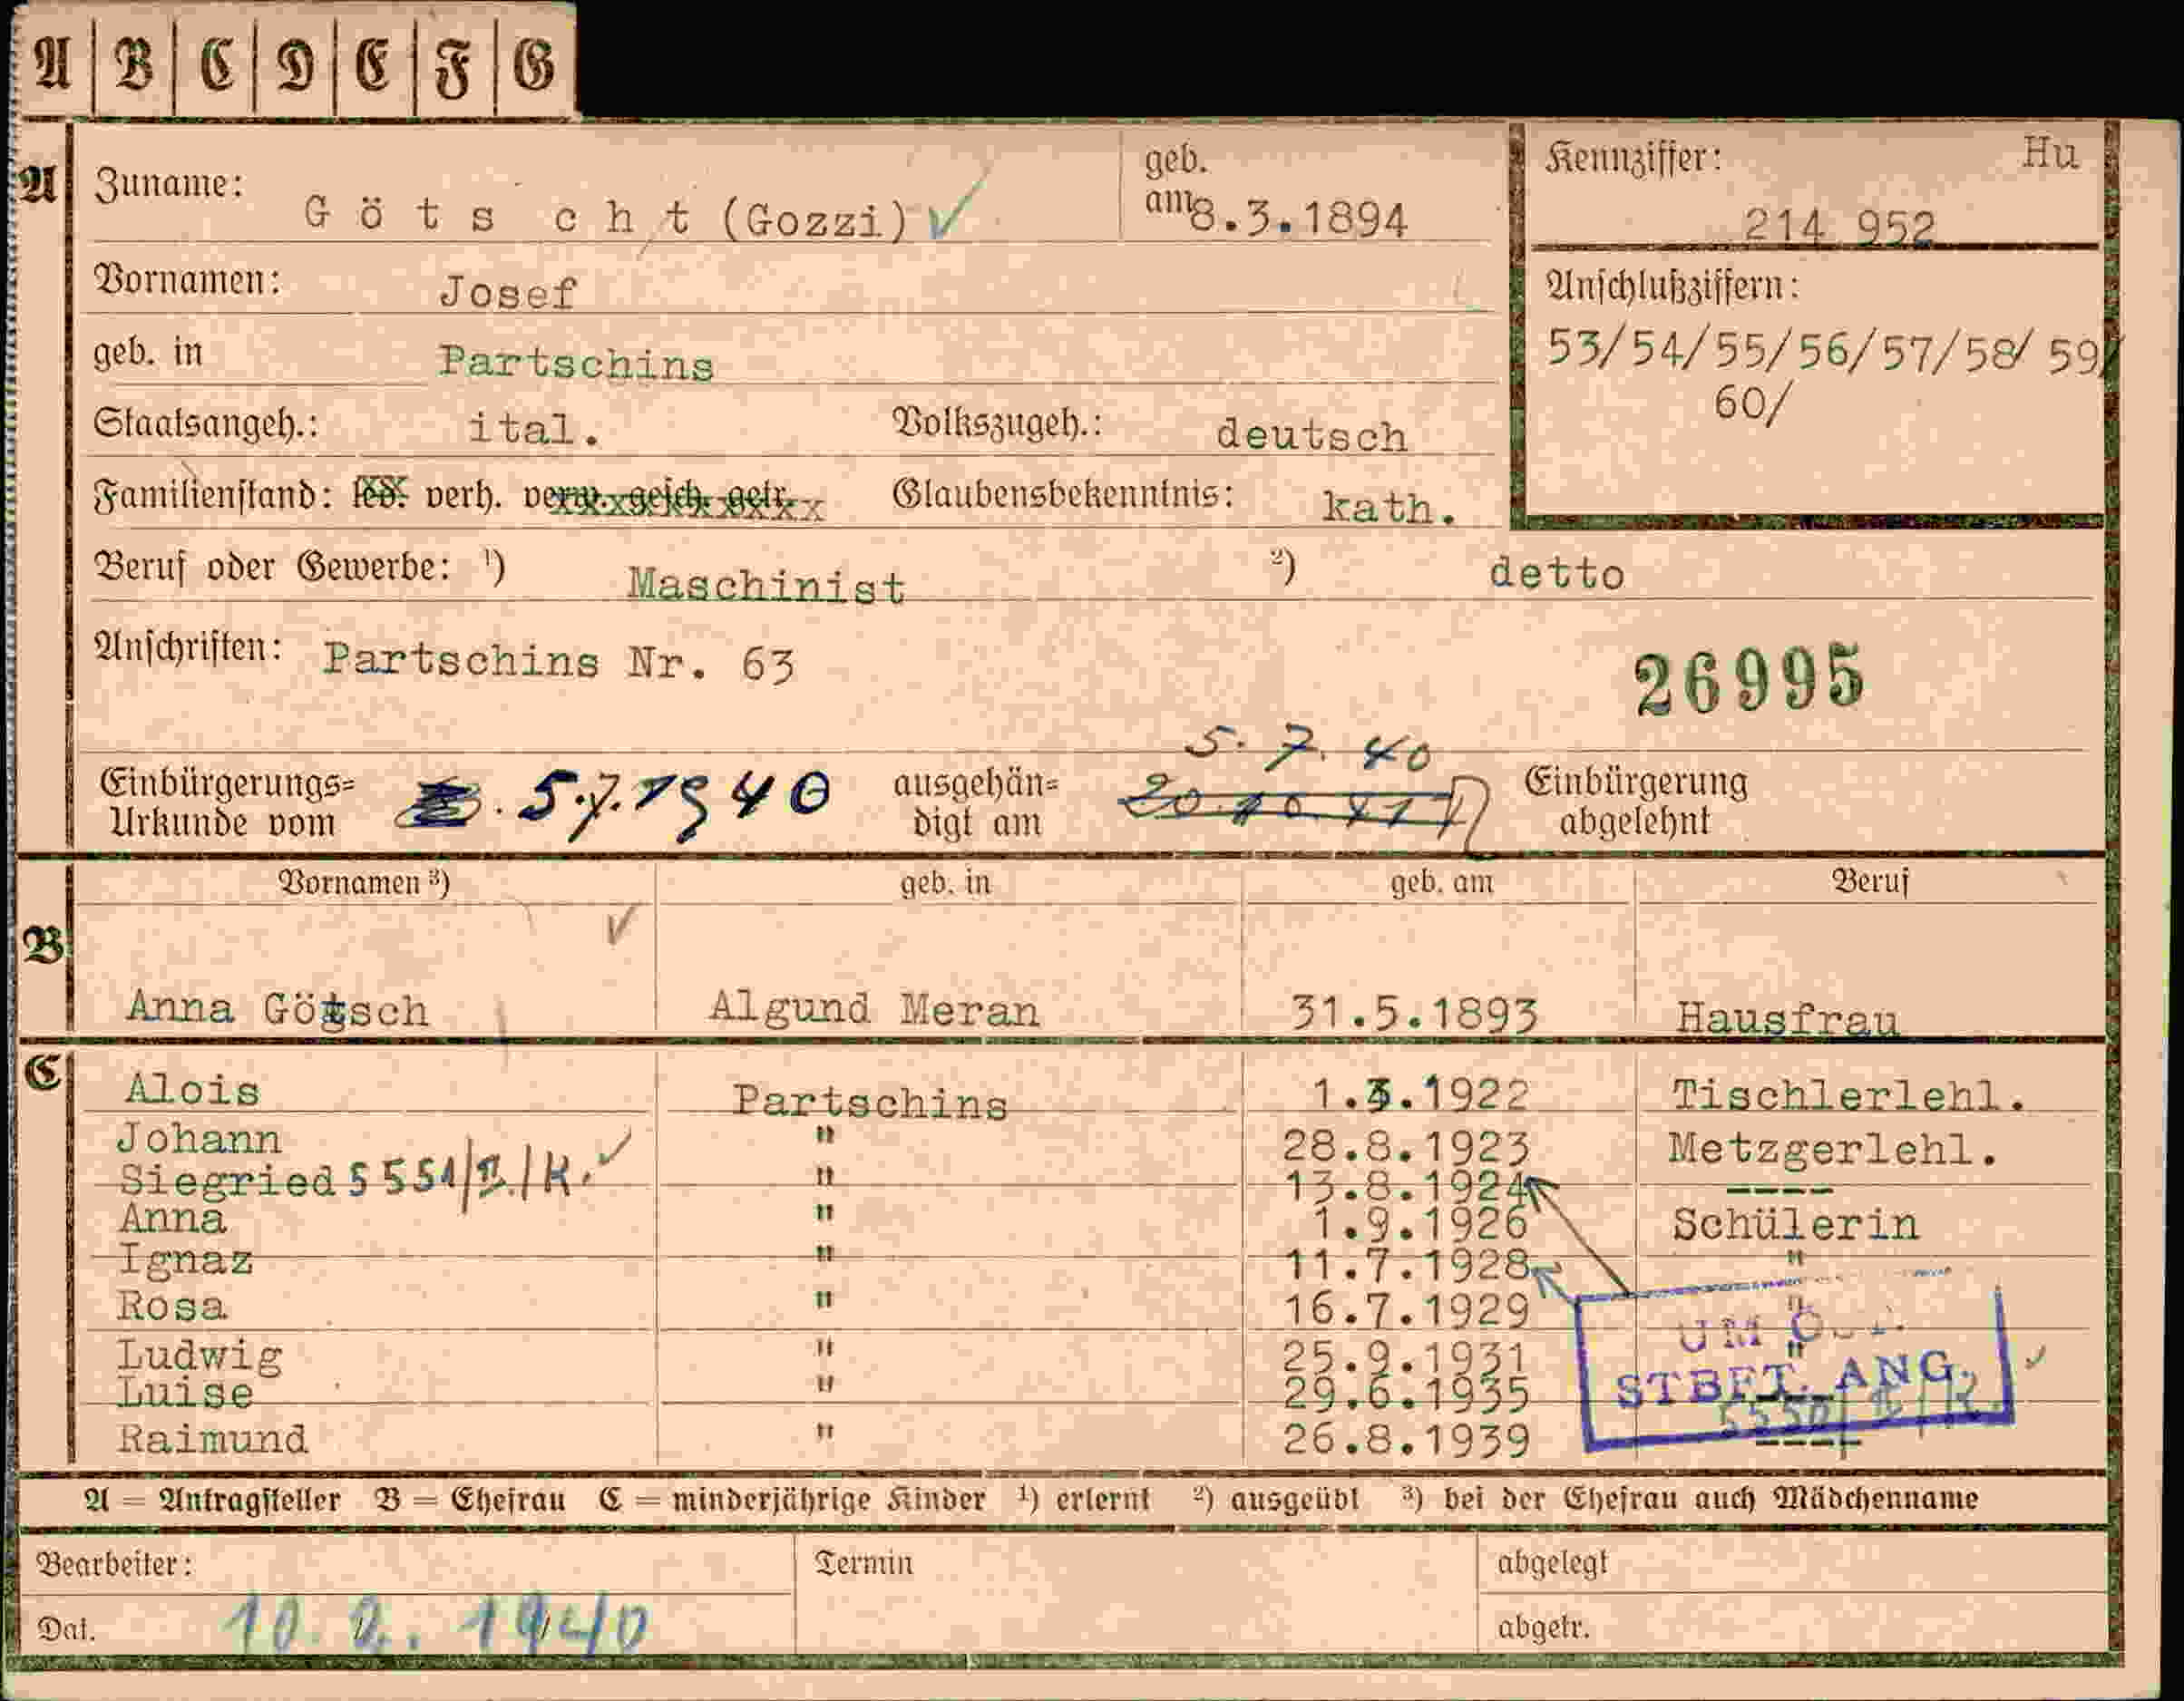 A B C D E F G
A Zuname: Göts cht (Gozzi) geb. am 8.3.1894 Kennziffer: Hu
214 952
Vornamen: Josef Anschlußziffern:
geb. in Partschins 53/54/55/56/57/58/ 59/
60/
Staatsangeh.: ital. Volkszugeh.: deutsch
Familienstand: led. verh. verw. gesch. getr. Glaubensbekenntnis: kath.
Beruf oder Gewerbe: ¹) Maschinist ²) detto
Anschriften: Partschins Nr. 63
26995
5. 7. 40
Einbürgerungs= Urkunde vom 5.7.1940 ausgehän= digt am Einbürgerung abgelehnt
Vornamen ³) geb. in geb. am Beruf
B Anna Götsch Algund Meran 31.5.1893 Hausfrau
C Alois Partschins 1.3.1922 Tischlerlehl.
Johann " 28.8.1923 Metzgerlehl.
Siegried 5551/ /K. " 13.8.1924 ----
Anna " 1.9.1926 Schülerin
Ignaz " 11.7.1928 "
Rosa " 16.7.1929 "
UM
Ludwig " 25.9.1931 "
STBFT. ANG.
Luise " 29.6.1935
Raimund " 26.8.1939 ----
A = Antragsteller B = Ehefrau C = minderjährige Kinder ¹) erlernt ²) ausgeübt ³) bei der Ehefrau auch Mädchenname
Bearbeiter: Termin abgelegt
Dat. 10. 2. 1940 abgetr.